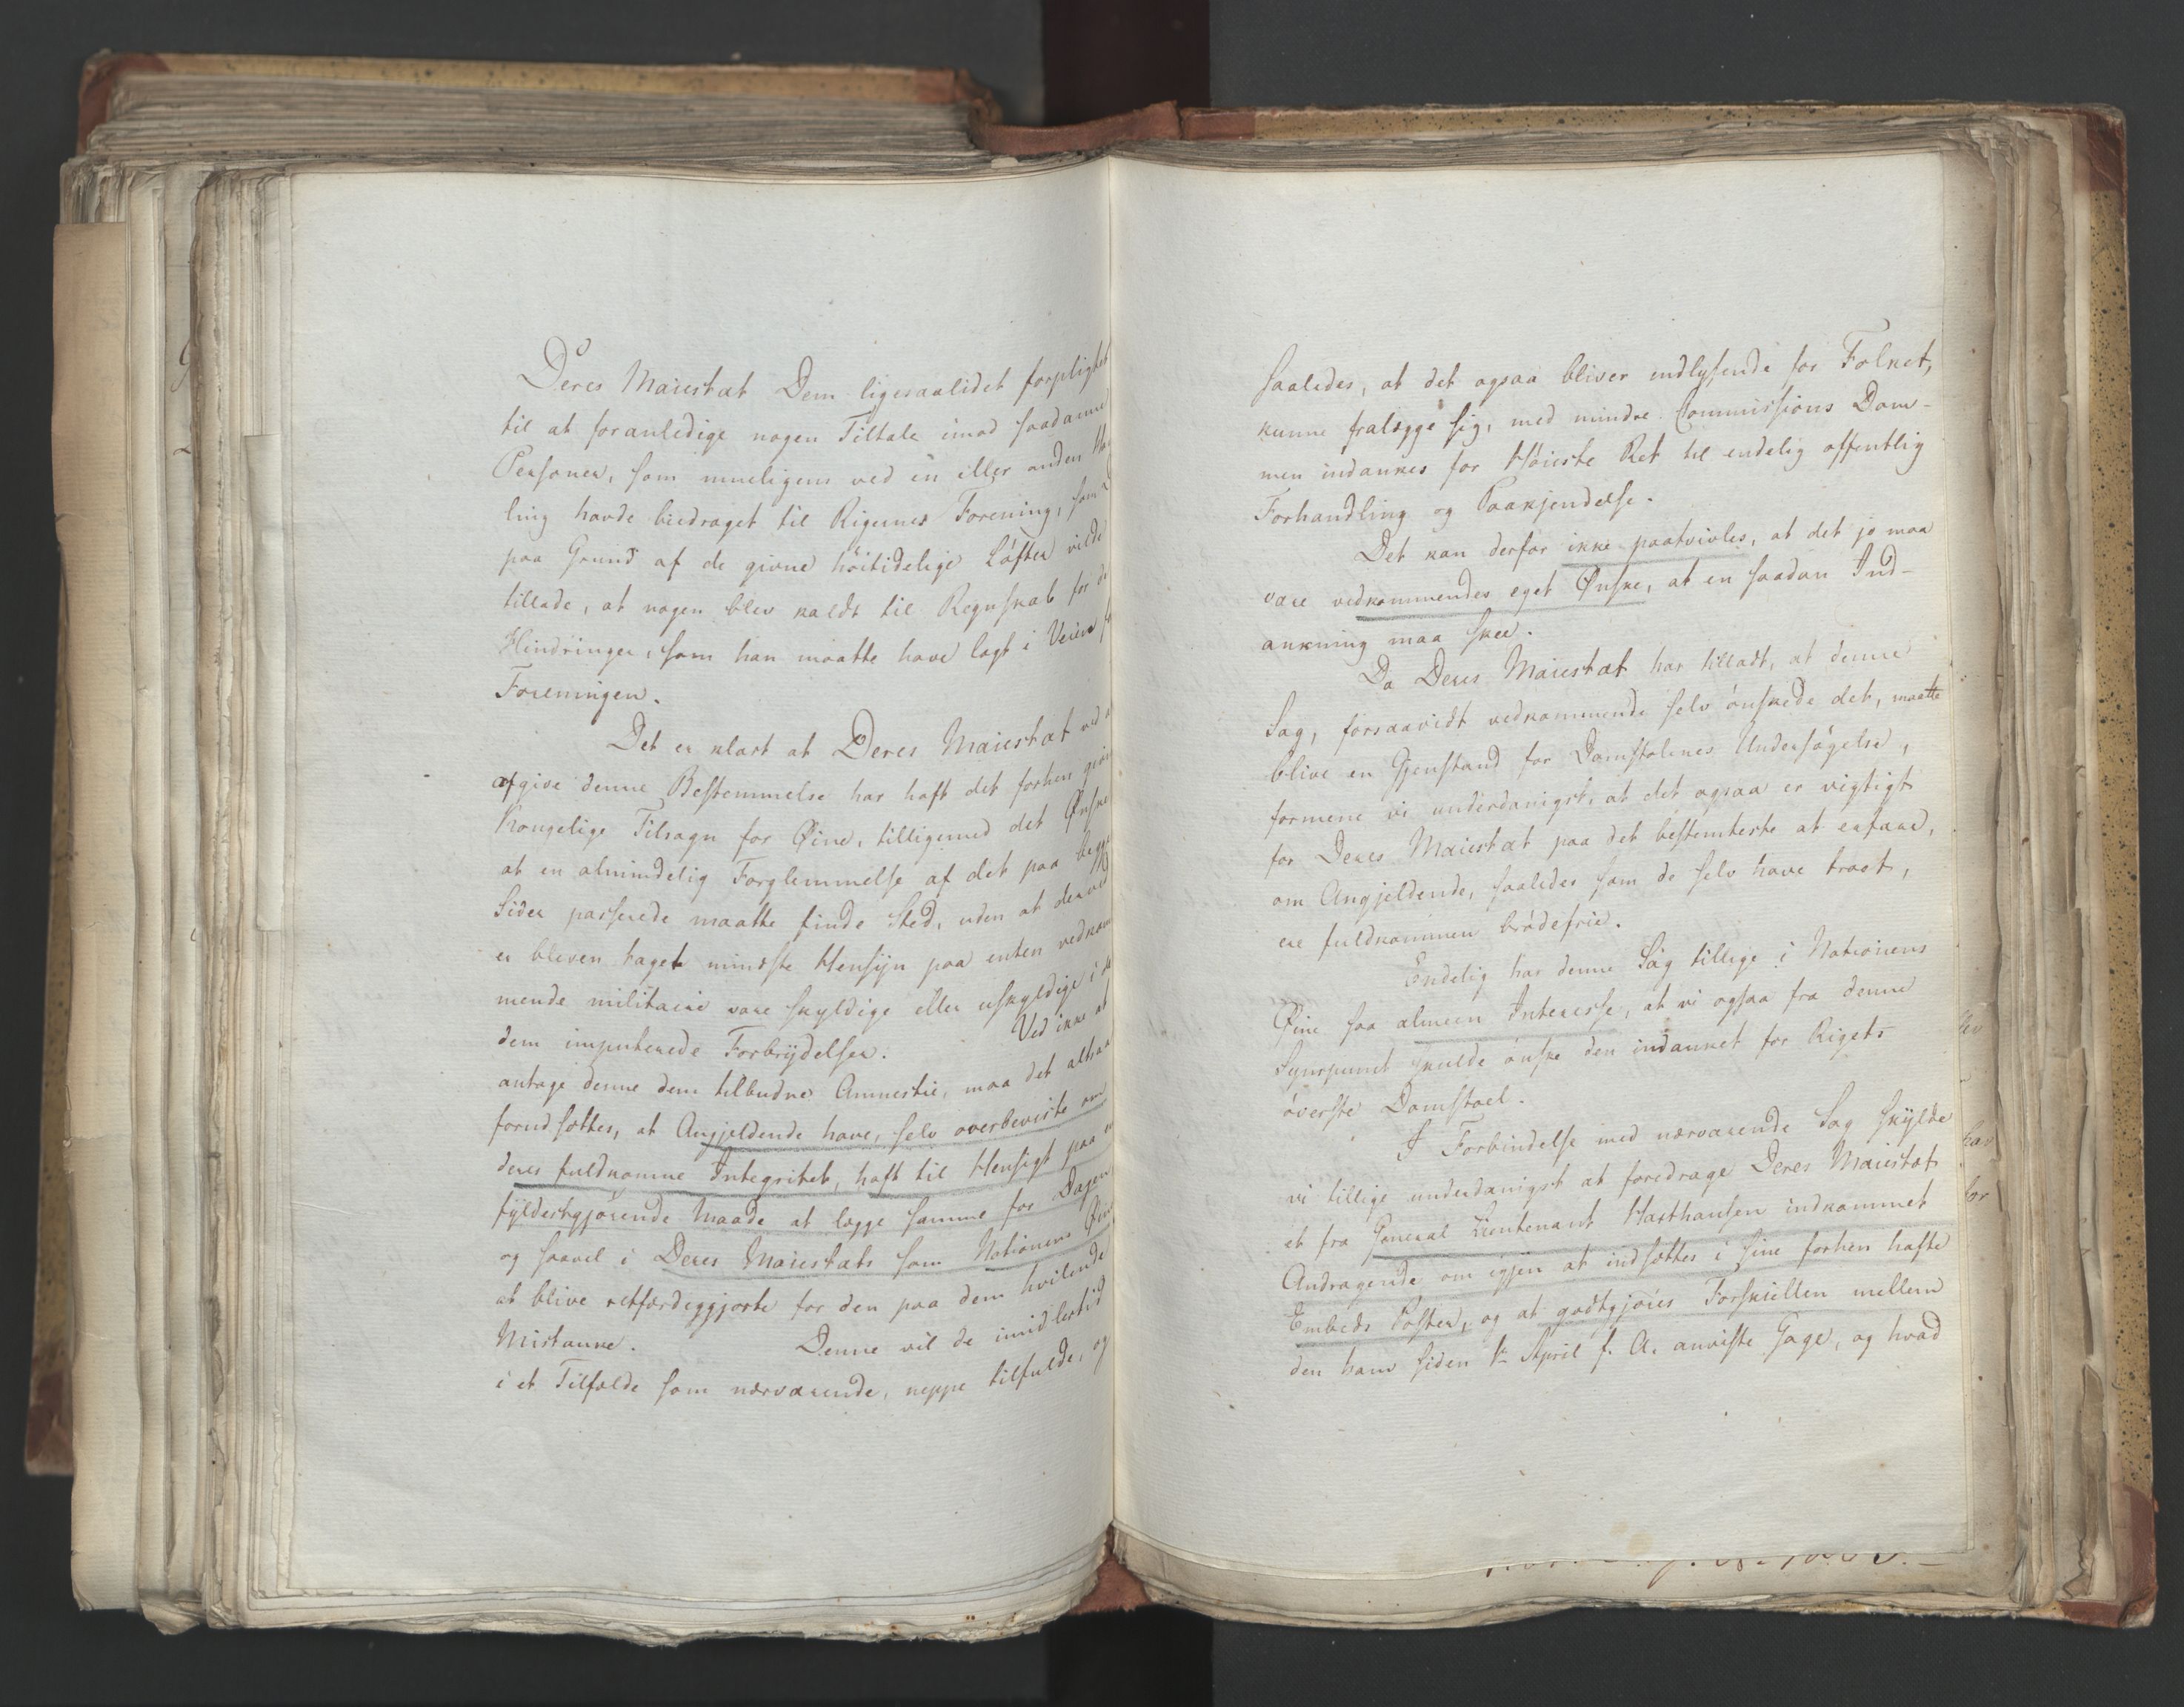 Deres Maiestæt Dem ligesaalidet forpligtet
til at foranledige nogen Tiltale imod saadanne
Personer, som mueligens ved en eller anden
ling havde biedraget til Rigernes Forening, som
paa Grund af de givne høitidelige Løfter vilde
tillade, at nogen blev kaldt til Regnskab for de
Hindringer, som han maatte have lagt i Veien
Foreningen.
Det er klart at Deres Maiestæt ved
afgive denne Bestemmelse har haft det forhen givne
Kongelige Tilsagn for Øine, tilligemed det Ønske
at en almindelig Forglemmelse af det paa begge
Sider passerede maatte finde Sted, uden at derved
er bleven taget mindste Hensyn paa enten vedkom
mende militaire vare skyldige eller uskyldige i de
dem imputerede Forbrydelser. Ved ikke at
antage denne dem tilbudne Amnestie, maa det altsaa
forudsættes, at Angjeldende have, selv overbeviste om
deres fuldkomne Integritet, haft til Hensigt paa en
fyldestgjørende Maade at lægge samme for Dagen
og saavel i Deres Maiestæts som Nationens Øine
at blive retfærdiggjorte for den paa dem hvilende
Mistanke. Denne vil de imidlertid
i et Tilfælde som nærværende, neppe tilfulde, og
saaledes, at det ogsaa bliver indlysende for Folket,
kunne fralægge sig, med mindre Commissions Dom-
men indankes for Høieste Ret til endelig offentlig
Forhandling og Paakjendelse.
Det kan derfor ikke paatvivles, at det jo maa
være vedkommendes eget Ønske, at en saadan Ind-
ankning maa skee.
Da Deres Maiestæt har tilladt, at denne
Sag, forsaavidt vedkommende selv ønskede det, maatte
blive en Gjenstand for Domstolenes Undersøgelse,
formene vi underdanigst, at det ogsaa er vigtigt
for Deres Maiestæt paa det bestemteste at erfare,
om Angjeldende, saaledes som de selv have troet,
ere fuldkommen brødefrie.
Endelig har denne Sag tillige i Nationens
Øine saa almeen Interesse, at vi ogsaa fra denne
Synspunct skulde ønske den indanket for Rigets
øverste Domstoel.
I Forbindelse med nærværende Sag skylde
vi tillige underdanigst at foredrage Deres Maiestæt
et fra General Lieutenant Haxthausen indkommet
Andragende om igjen at indsættes i sine forhen hafte
Embeds Poster, og at godtgjøres Forskiellen mellem
den ham siden 1te April f. A. anviste Gage, og hvad